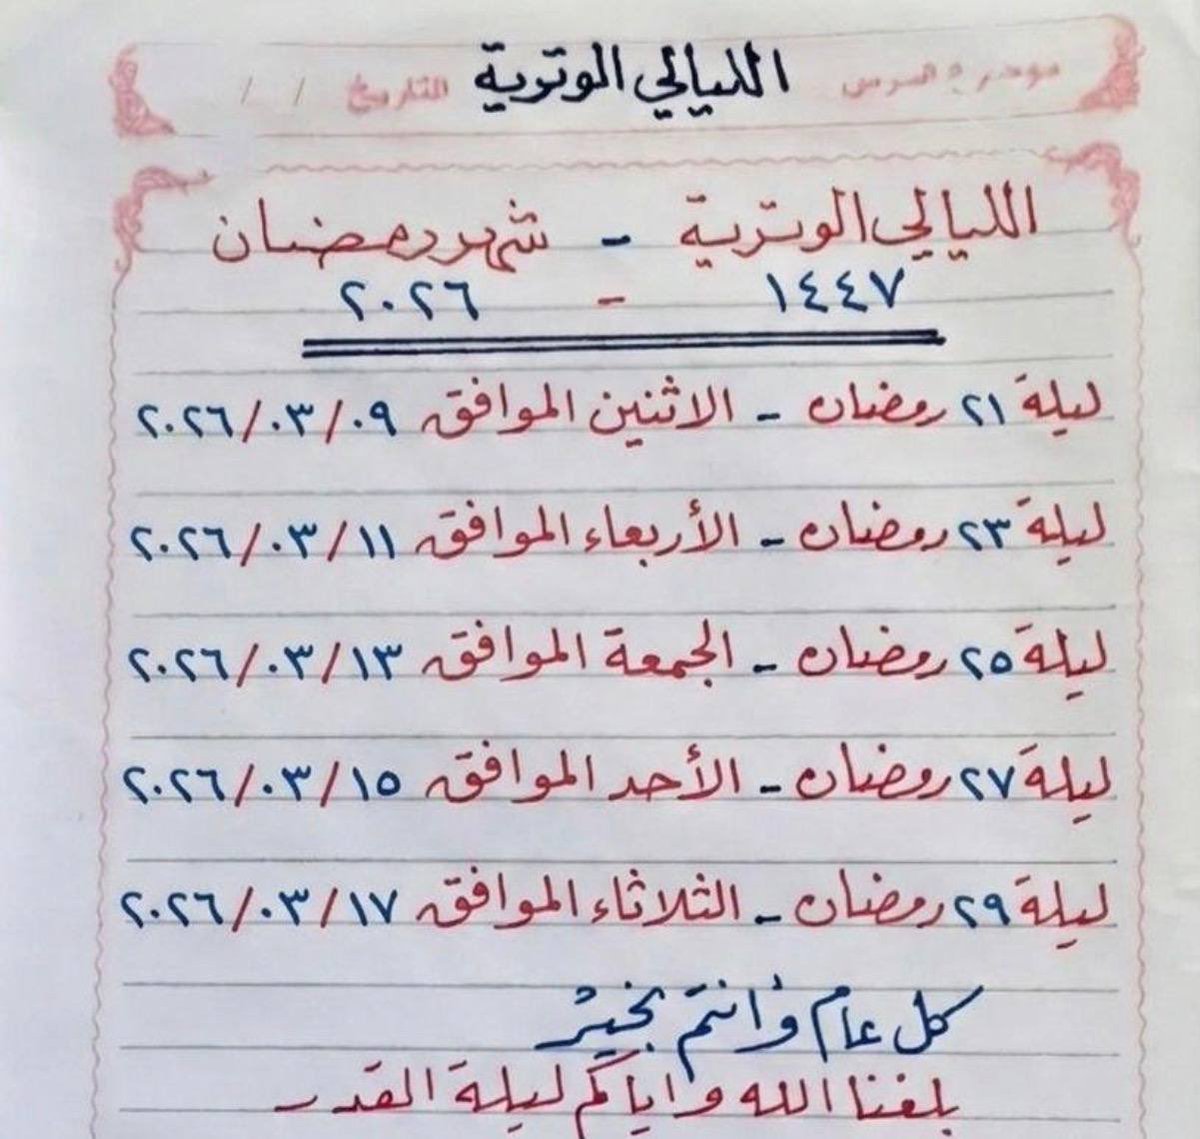 الليالي الوترية
التاريخ / /
الليالي الوترية - شهر رمضان
١٤٤٧ - ٢٠٢٦
ليلة ٢١ رمضان - الاثنين الموافق ٢٠٢٦/٠٣/٠٩
ليلة ٢٣ رمضان - الأربعاء الموافق ٢٠٢٦/٠٣/١١
ليلة ٢٥ رمضان - الجمعة الموافق ٢٠٢٦/٠٣/١٣
ليلة ٢٧ رمضان - الأحد الموافق ٢٠٢٦/٠٣/١٥
ليلة ٢٩ رمضان - الثلاثاء الموافق ٢٠٢٦/٠٣/١٧
كل عام وأنتم بخير
بلغنا الله واياكم ليلة القدر